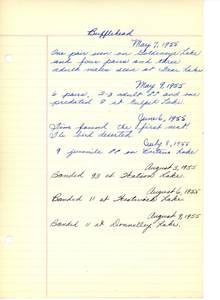 Bufflehead
May 7, 1955
One pair seen on Goldeneye Lake
and four pairs and three
adult males seen at Bear Lake
May 9, 1955
6 pairs, 2-3 adult ♂♂ and one
predated ♀ at Gulpit Lake.
June 6, 1955
Tom found the first nest.
The bird deserted.
July 8, 1955
9 juvenile ♂♂ on Lake
August 3, 1955
Banded 93 at Watson Lake.
August 6, 1955
Banded 11 at Westwick Lake.
August 9, 1955
Banded 11 at Donnelley Lake.